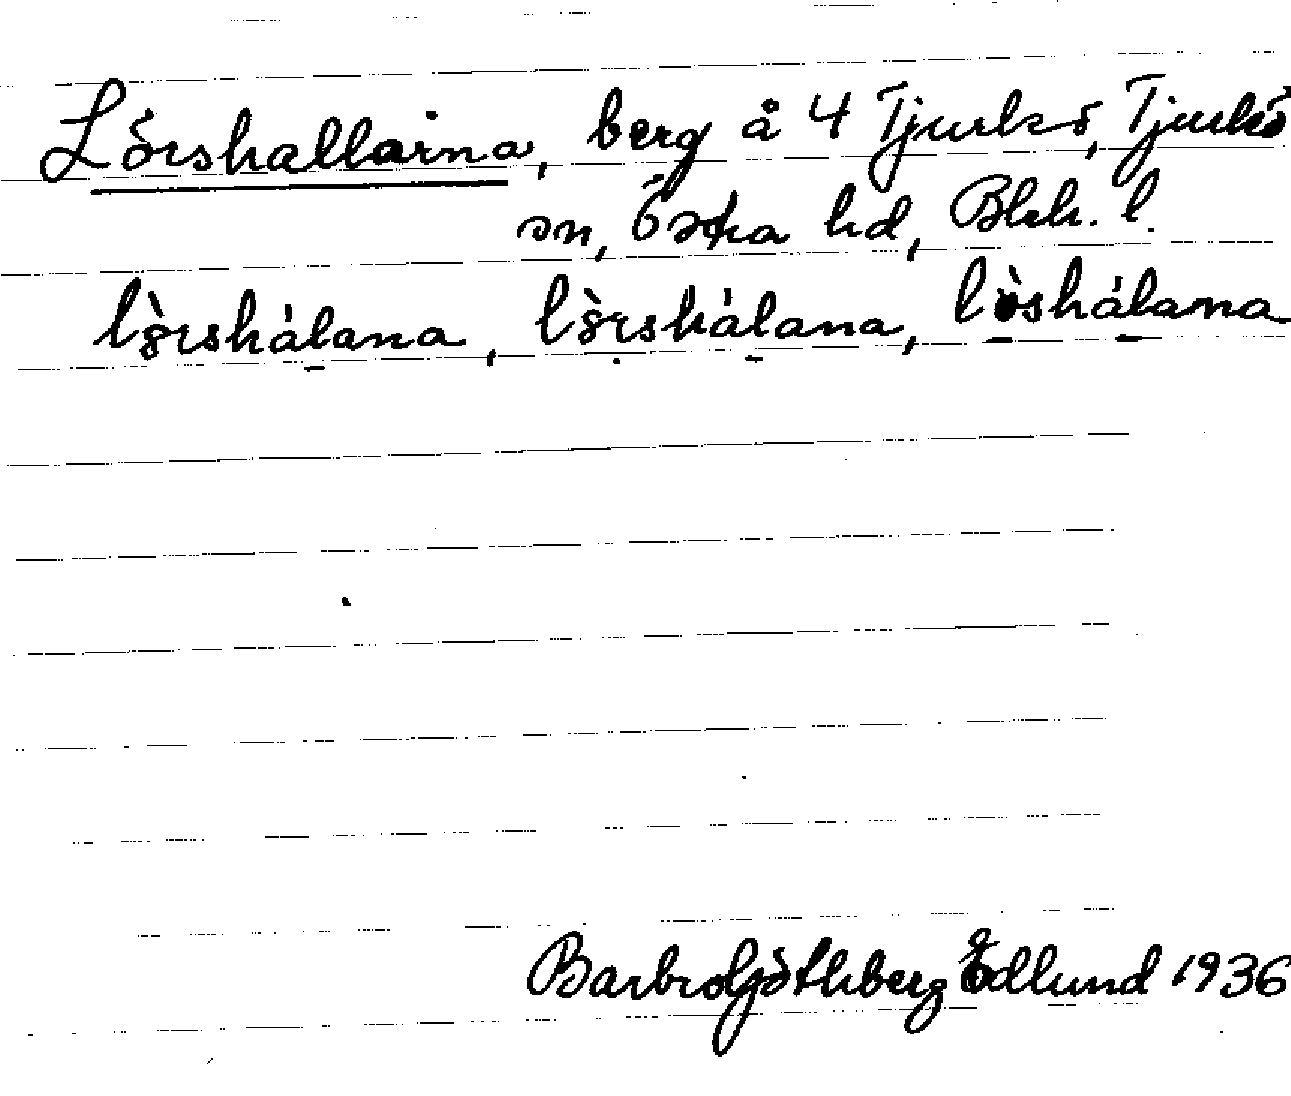 Lörshallarna, berg å 4 Tjurkö, Tjurkö
sn, Östra hd, Blek. l.
lòrshálana, lòrshálana, lòshálana
Barbro Göthberg Edlund 1936